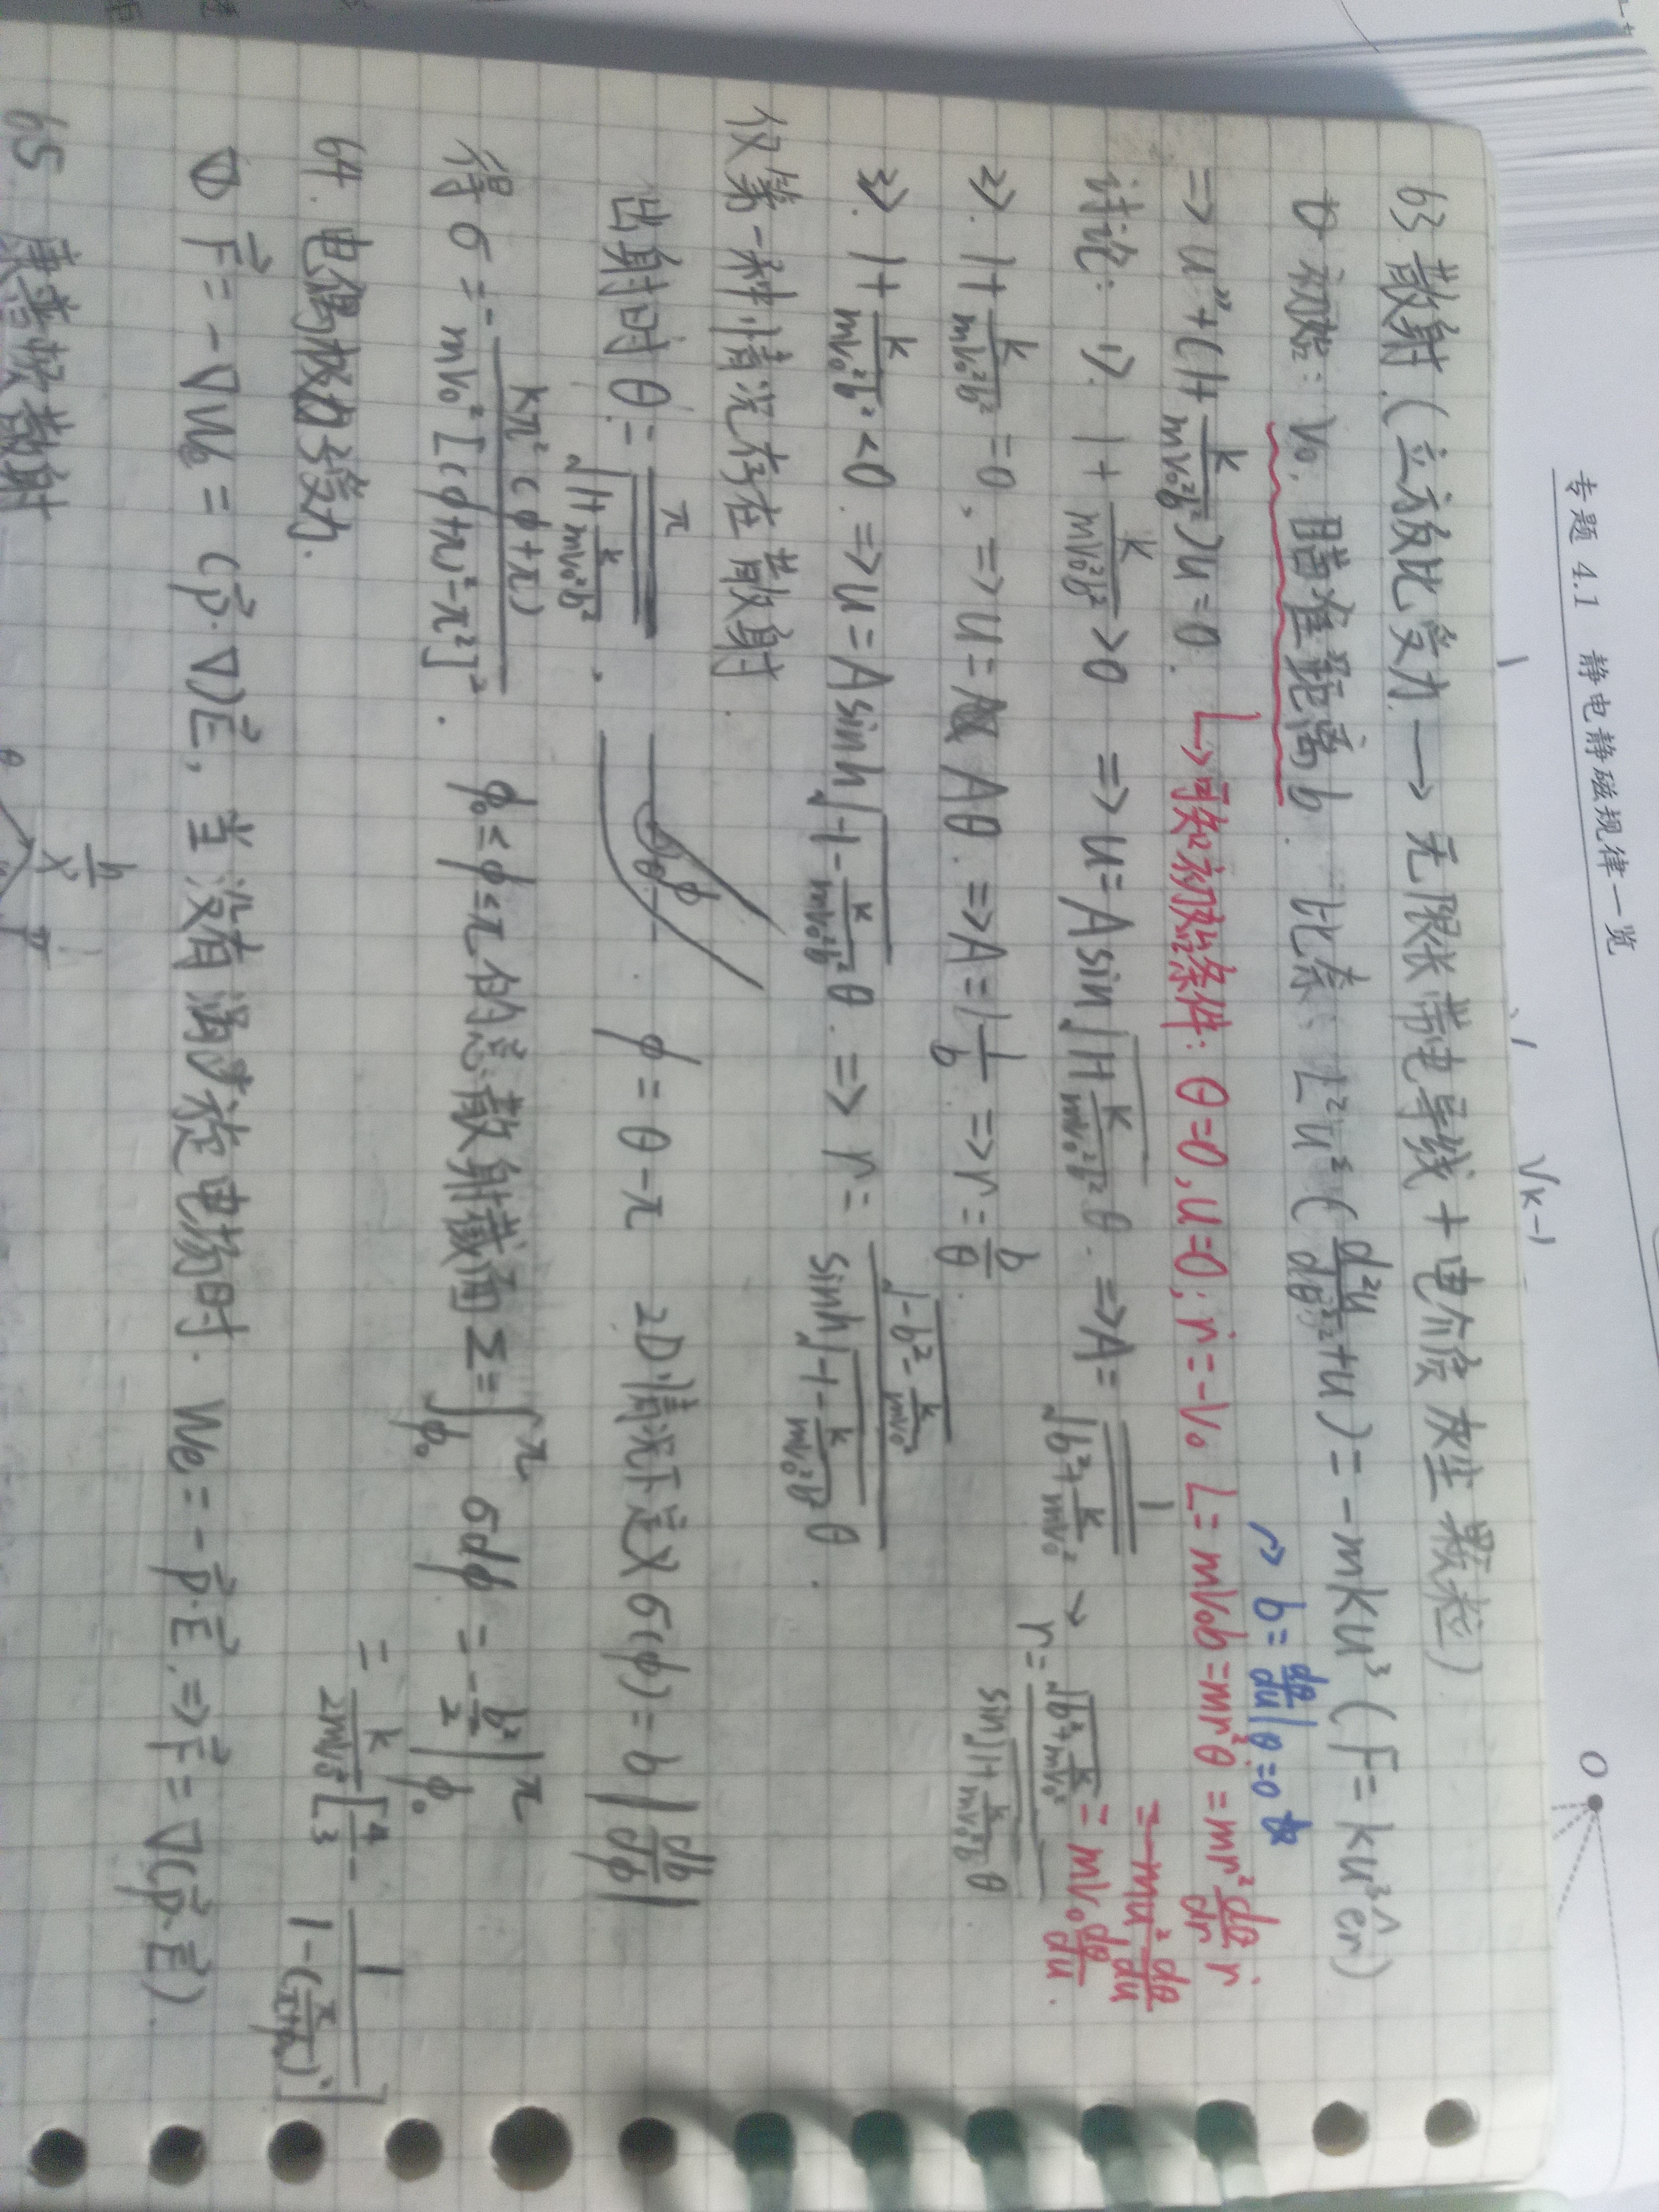 专题 4.1 静电静磁规律一览
O
√k-1
63 散射 (立方反比受力 → 无限长带电导线 + 电介质灰尘颗粒)
① 初始: v₀. 瞄准距离 b. 比奈: L²u²(d²u/dθ²+u) = -mku³ (F = ku³êr)
→ b = dθ/du|θ=0
⇒ u''+(1+k/mv₀²b²)u=0. ↳ 可知初始条件: θ=0, u=0; ṙ=-v₀ L=mv₀b=mr²θ̇=mr² dθ/dr ṙ
= mu² dθ/du
= mv₀ dθ/du.
讨论: 1>. 1+k/mv₀²b²>0 ⇒ u=Asin√(1+k/mv₀²b²) θ. ⇒ A=1/√(b²+k/mv₀²) → r=√(b²+k/mv₀²)/sin√(1+k/mv₀²b²) θ
2>. 1+k/mv₀²b²=0. ⇒ u=Aθ. ⇒ A=1/b ⇒ r=b/θ.
3>. 1+k/mv₀²b²<0. ⇒ u=Asinh√(-1-k/mv₀²b²) θ. ⇒ r=√(-b²-k/mv₀²)/sinh√(-1-k/mv₀²b²) θ.
仅第一种情况存在散射.
出射时 θ=π/√(1+k/mv₀²b²). θ φ φ=θ-π 2D情况下定义 σ(φ)=b|db/dφ|
得 σ=-kπ²(φ+π)/mv₀²[(φ+π)²-π²]². φ₀≤φ≤π 的总散射截面 Σ=∫φ₀^π σdφ = -b²/2|φ₀^π
= k/2mv₀²[4/3 - 1/1-(π/π+φ₀)²]
64. 电偶极力受力.
① F⃗=-∇We=(p⃗·∇)E⃗, 当没有涡旋电场时. We=-p⃗·E⃗. ⇒ F⃗=∇(p⃗·E⃗).
65 康普顿散射
h/λ
θ